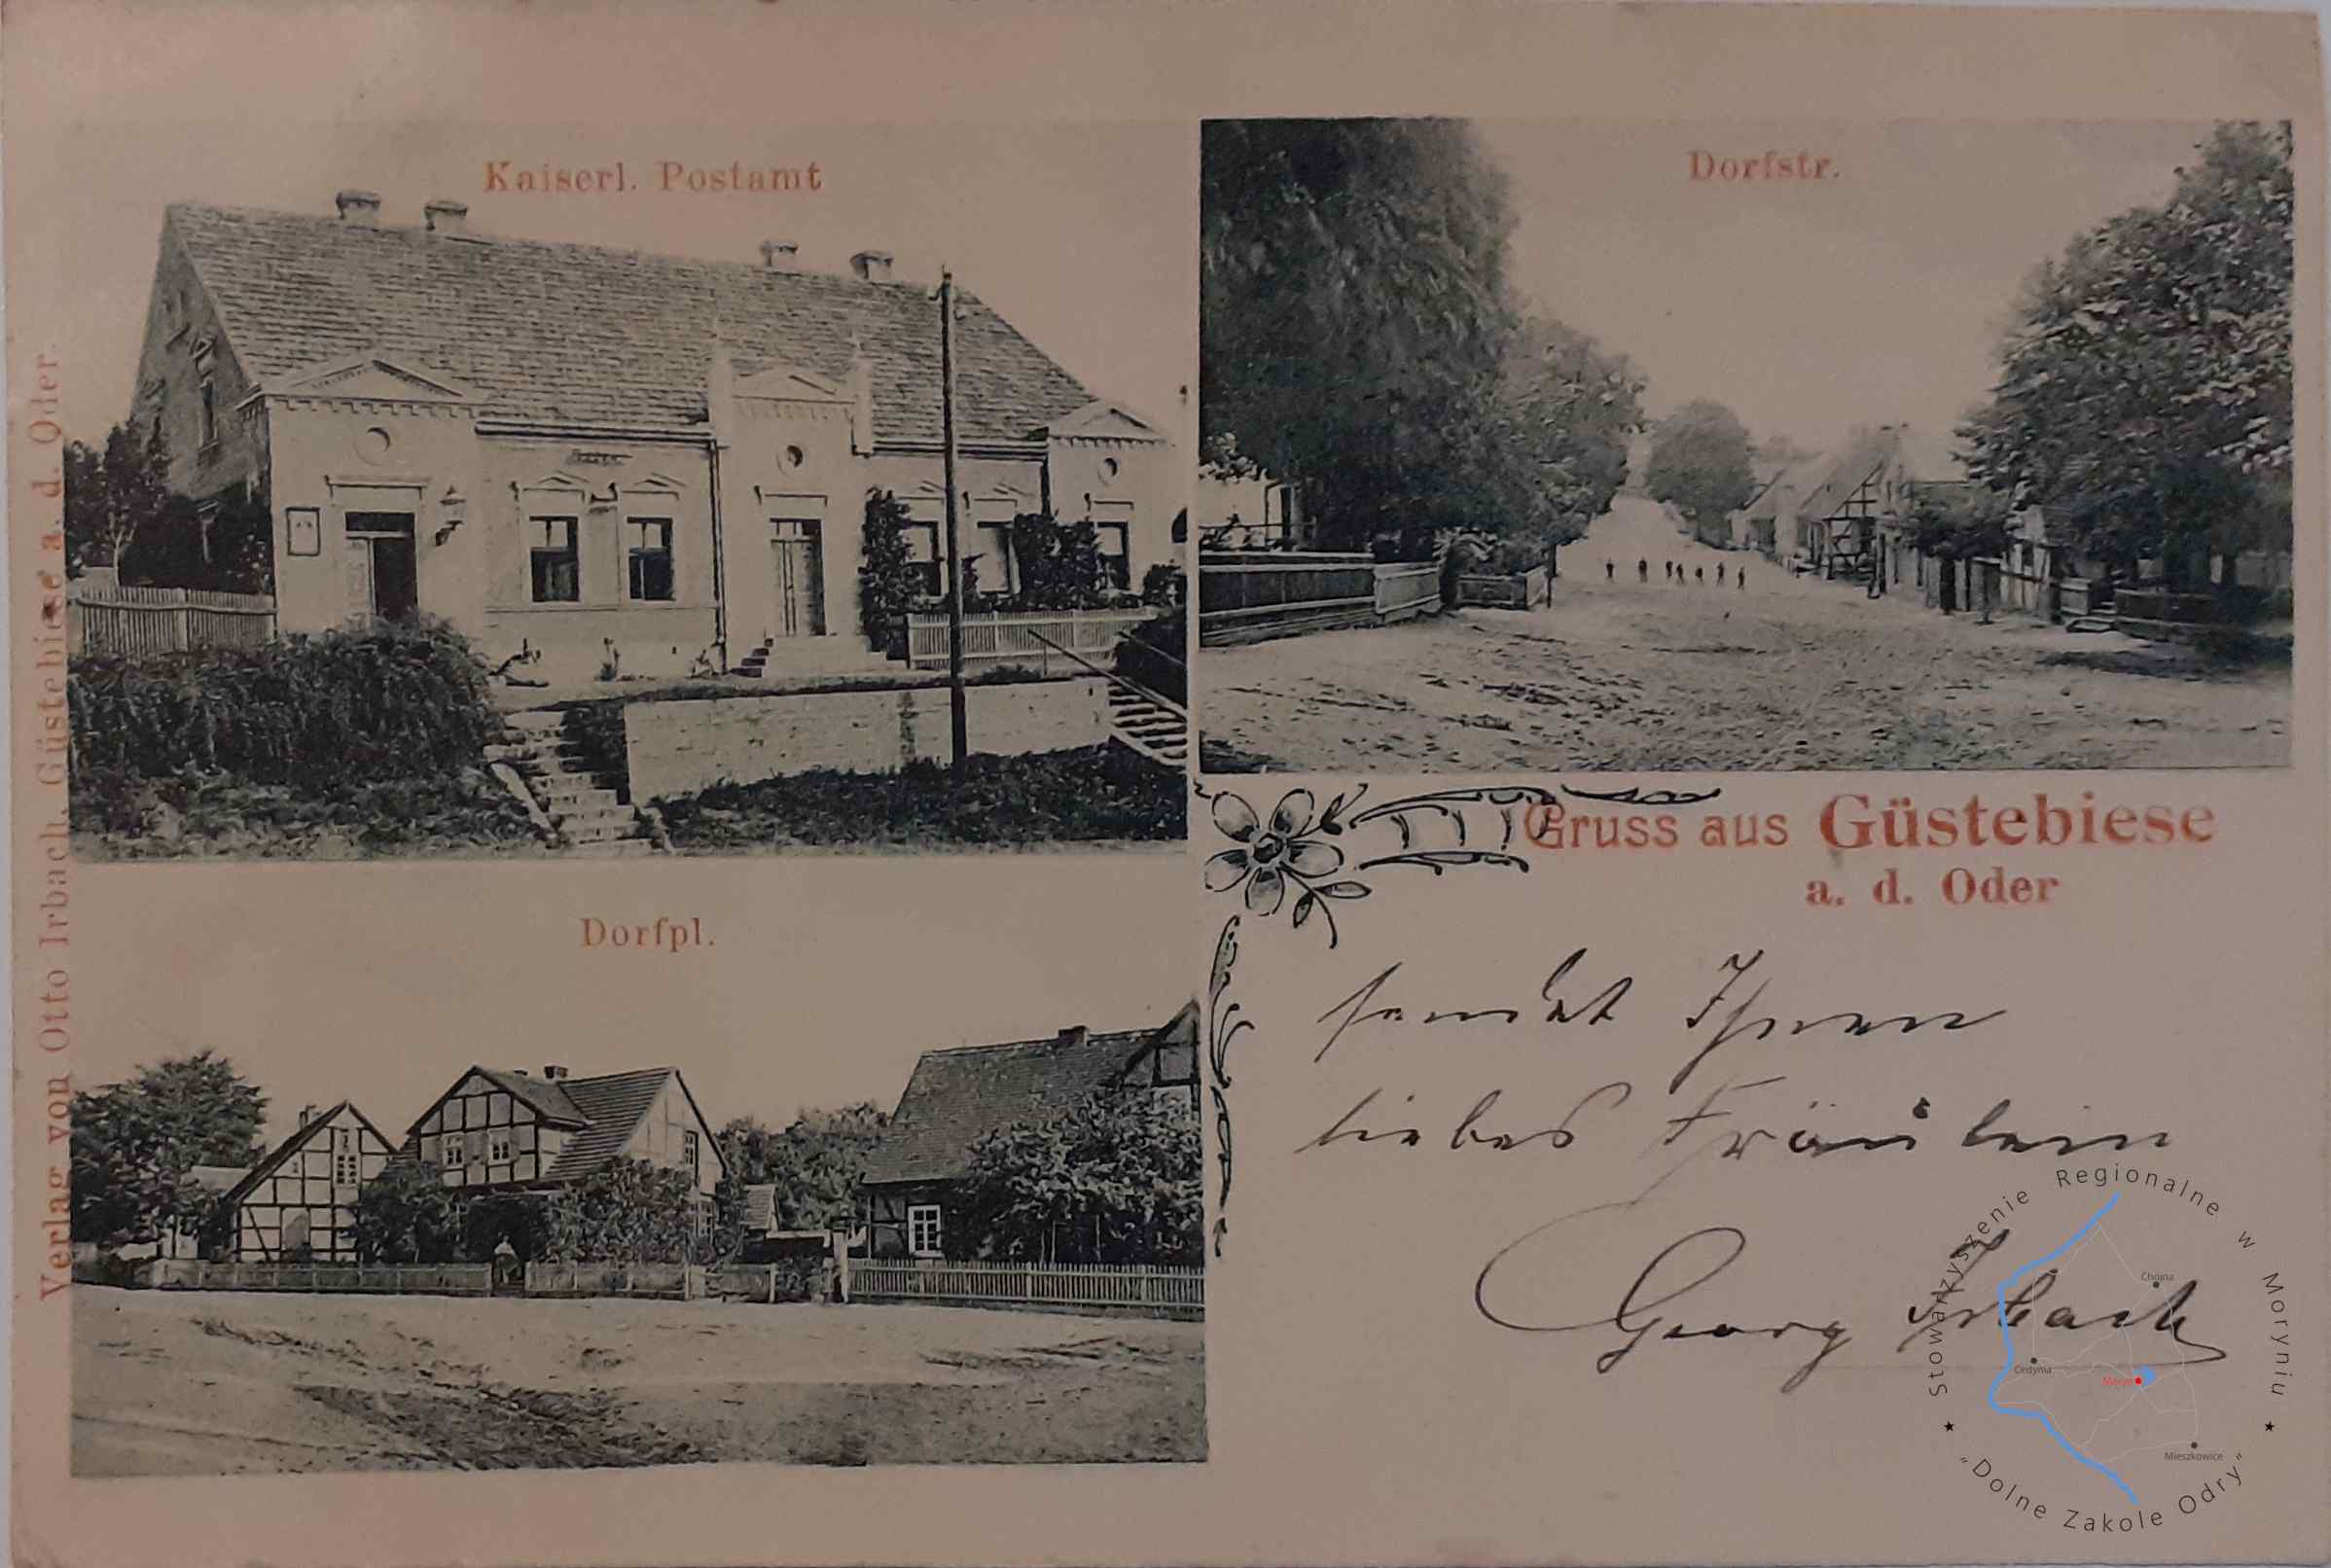 Kaiserl. Postamt
Dorfstr.
Verlag von Otto Irbach, Güstebiese a. d. Oder.
Gruss aus Güstebiese
a. d. Oder
Dorfpl.
sendet Ihnen
liebes Fräulein
Georg Irbach
Stowarzyszenie Regionalne w Moryniu
Chojna
Cedynia
Moryń
Mieszkowice
"Dolne Zakole Odry"